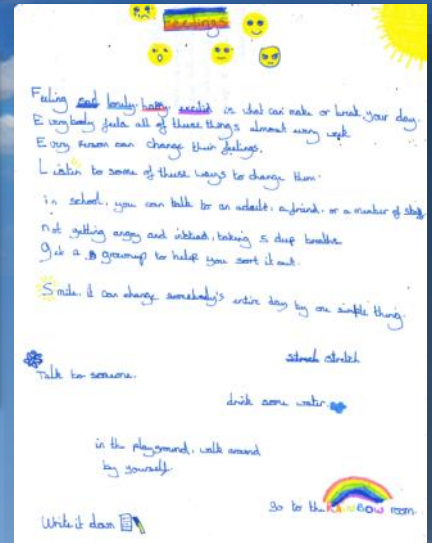 Feelings
Feeling sad lonely happy excited is what can make or break your day.
Everybody feels all of these things almost every week
Every person can change their feelings.
Listen to some of these ways to change them.
in school, you can talk to an adult, a friend, or a member of staff
not getting angry and instead, taking 5 deep breaths
get a grownup to help you sort it out.
Smile, it can change somebody's entire day by one simple thing.
stretch
Talk to someone.
drink some water.
in the playground, walk around
by yourself.
go to the RAINBOW room.
Write it down